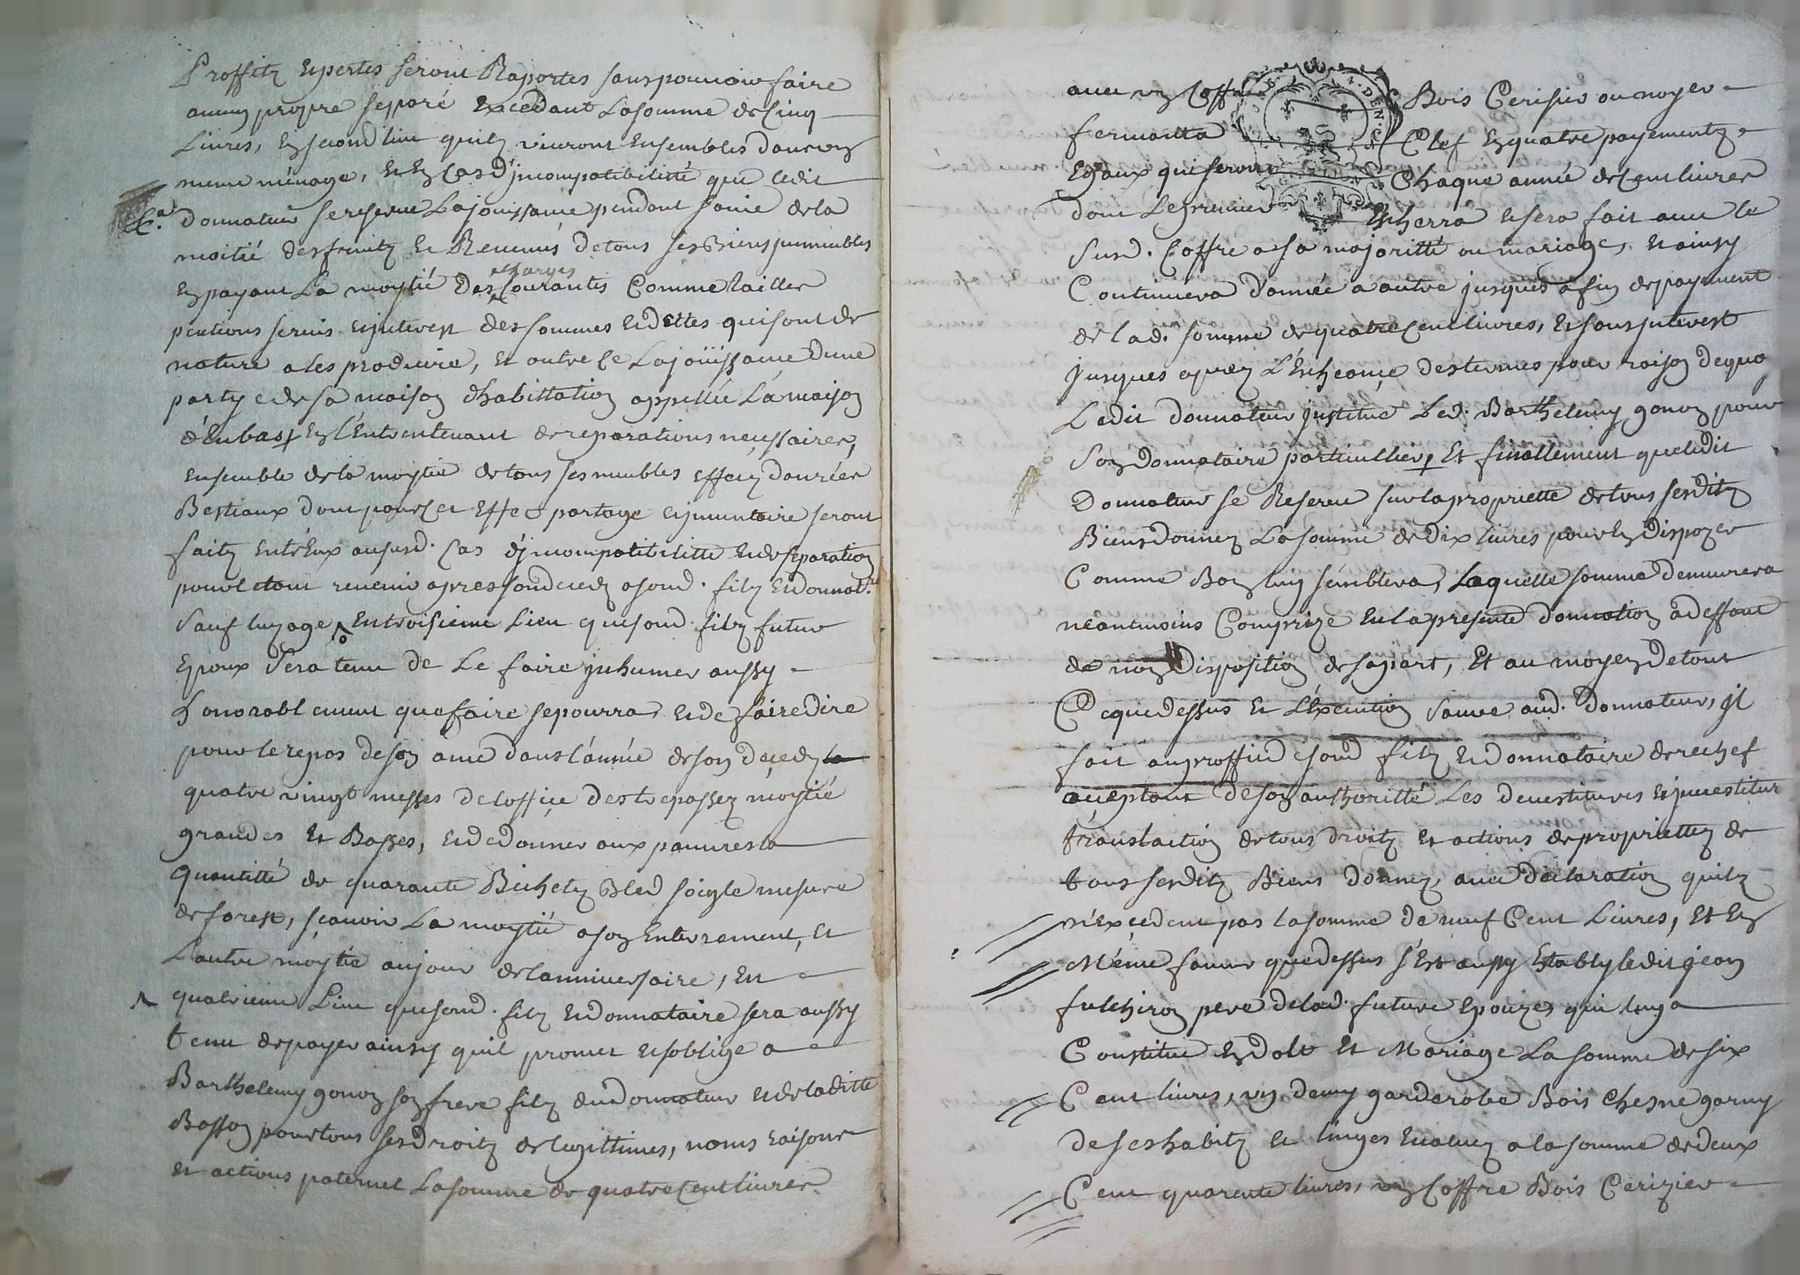 Proffitz et pertes seront Raportes sans pouvoir faire
aucun propre separé Excedant La somme de Cinq
Livres, En second lieu quilz vivront Ensembles dans un
meme ménage, et En Cas d'jncompatibilitté que ledit
donnateur se reserve La jouissance pendant sa vie de la
moitié des fruitz et Revenus de tous ses Biens jmmeubles
En payant La moytié des charges Courantes Comme tailles
pentions servis et jnterest des sommes et dettes qui sont de
nature a les produire, et outre ce La joüissance dune
partye de sa maison d'habittation appellée La maison
d'Enbas, En l'Entretenant de reparations necessaires,
Ensemble de la moytie de tous ses meubles effectz danrées
Bestiaux dont pour cet Effet partage et jnventaire seront
faitz entr'Eux au susd. Cas d'jncompatibilitté et de separation
pour le tout revenir apres son decedz a sond. filz et donnat.re
Sauf luzage, En troisieme Lieu que sond. filz futur
Epoux sera tenu de Le faire jnhumer aussy
honorablement que faire se pourra, et de faire dire
pour le repos de son ame dans l'année de son decedz la
quatre vingt messes de l'office des trepassez moytié
grandes et Basses, et de donner aux pauvres la
Quantitté de quarante Bichetz Bled soigle mesure
de forest, sçavoir La moytié a son Enterrement, et
L'autre moytie au jour de lanniversaire, En
quatrieme Lieu que sond. filz et donnataire sera aussy
tenu de payer ainsy quil promet et soblige a
Barthelemy gonon son frere filz dud. donnateur et de laditte
Basson pour tous ses droitz de legittimes, noms raisons
et actions paternel La somme de quatre Cent livres
avec un Coffre Bois Cerisier ou noyer
fermant a Clef En quatre payementz
Egaux qui seront Chaque année de Cent livres
dont Le premier Escherra et sera fait avec le
Susd. Coffre a sa majoritté ou mariage, et ainsy
Continuera d'année a autre jusques a fin de payement
de lad. somme de quatre Cent livres, et sans jnterest
jusques aprez L'Escheance des termes pour raison de quoy
Ledit donnateur jnstitue Led. Barthelemy gonon pour
Son donnataire particullier, Et finallement que ledit
Donnateur se Reserve sur la proprietté de tous sesditz
Biens donnez La somme de dix livres pour En Dispozer
Comme Bon luy semblera, Laquelle somme demeurera
néantmoins Comprize En la presente donnation a deffaut
de non Disposition de sa part, Et au moyen de tout
Ce que dessus et L'Execution Sauve aud. donnateur, jl
fait au proffit de sond filz et donnataire de rechef
acceptant de son authoritté Les devestitures et jnvestitures
translation de tous droitz et actions de propriettez de
tous sesditz Biens donnez, avec declaration quilz
n'Excedent pas la somme de neuf Cent Livres, Et En
Même faveur que dessus s'Est aussy Etably ledit jean
fulchiron pere de lad. future Epouze, qui luy a
Constitué En dot Et Mariage La somme de six
Cent livres, un demy garderobe Bois Chesne garny
de ses habitz et linges Evaluez a la somme de deux
Cent quarente livres, un Coffre Bois Cerizier